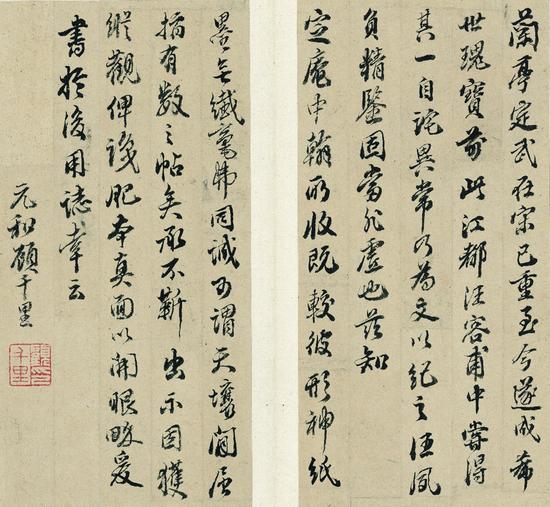 蘭亭定武在宋已重至今遂成希
世瑰寶前此江都汪容甫中嘗得
其一自詫異常乃為文以紀之汪夙
負精鑒固當非虛也茲知
定庵中翰所收既較彼形神紙
墨無纖毫弗同誠可謂天壤間屈
指有數之帖矣承不靳出示因獲
縱觀俾識肥本真面以開眼畡爰
書於後用誌幸云
元和顧千里